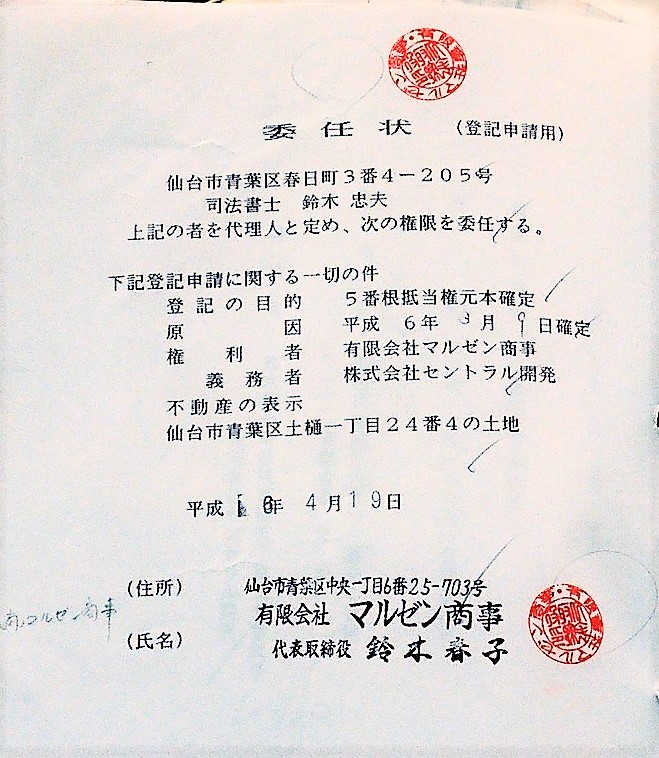 委任状 (登記申請用)
仙台市青葉区春日町3番4-205号
司法書士 鈴木 忠夫
上記の者を代理人と定め、次の権限を委任する。
下記登記申請に関する一切の件
登記の目的 5番根抵当権元本確定
原因 平成 6年 3月 9日確定
権利者 有限会社マルゼン商事
義務者 株式会社セントラル開発
不動産の表示
仙台市青葉区土樋一丁目24番4の土地
平成 6年 4月19日
(住所) 仙台市青葉区中央一丁目6番25-703号
有限会社 マルゼン商事
マルゼン商事
(氏名) 代表取締役 鈴木春子